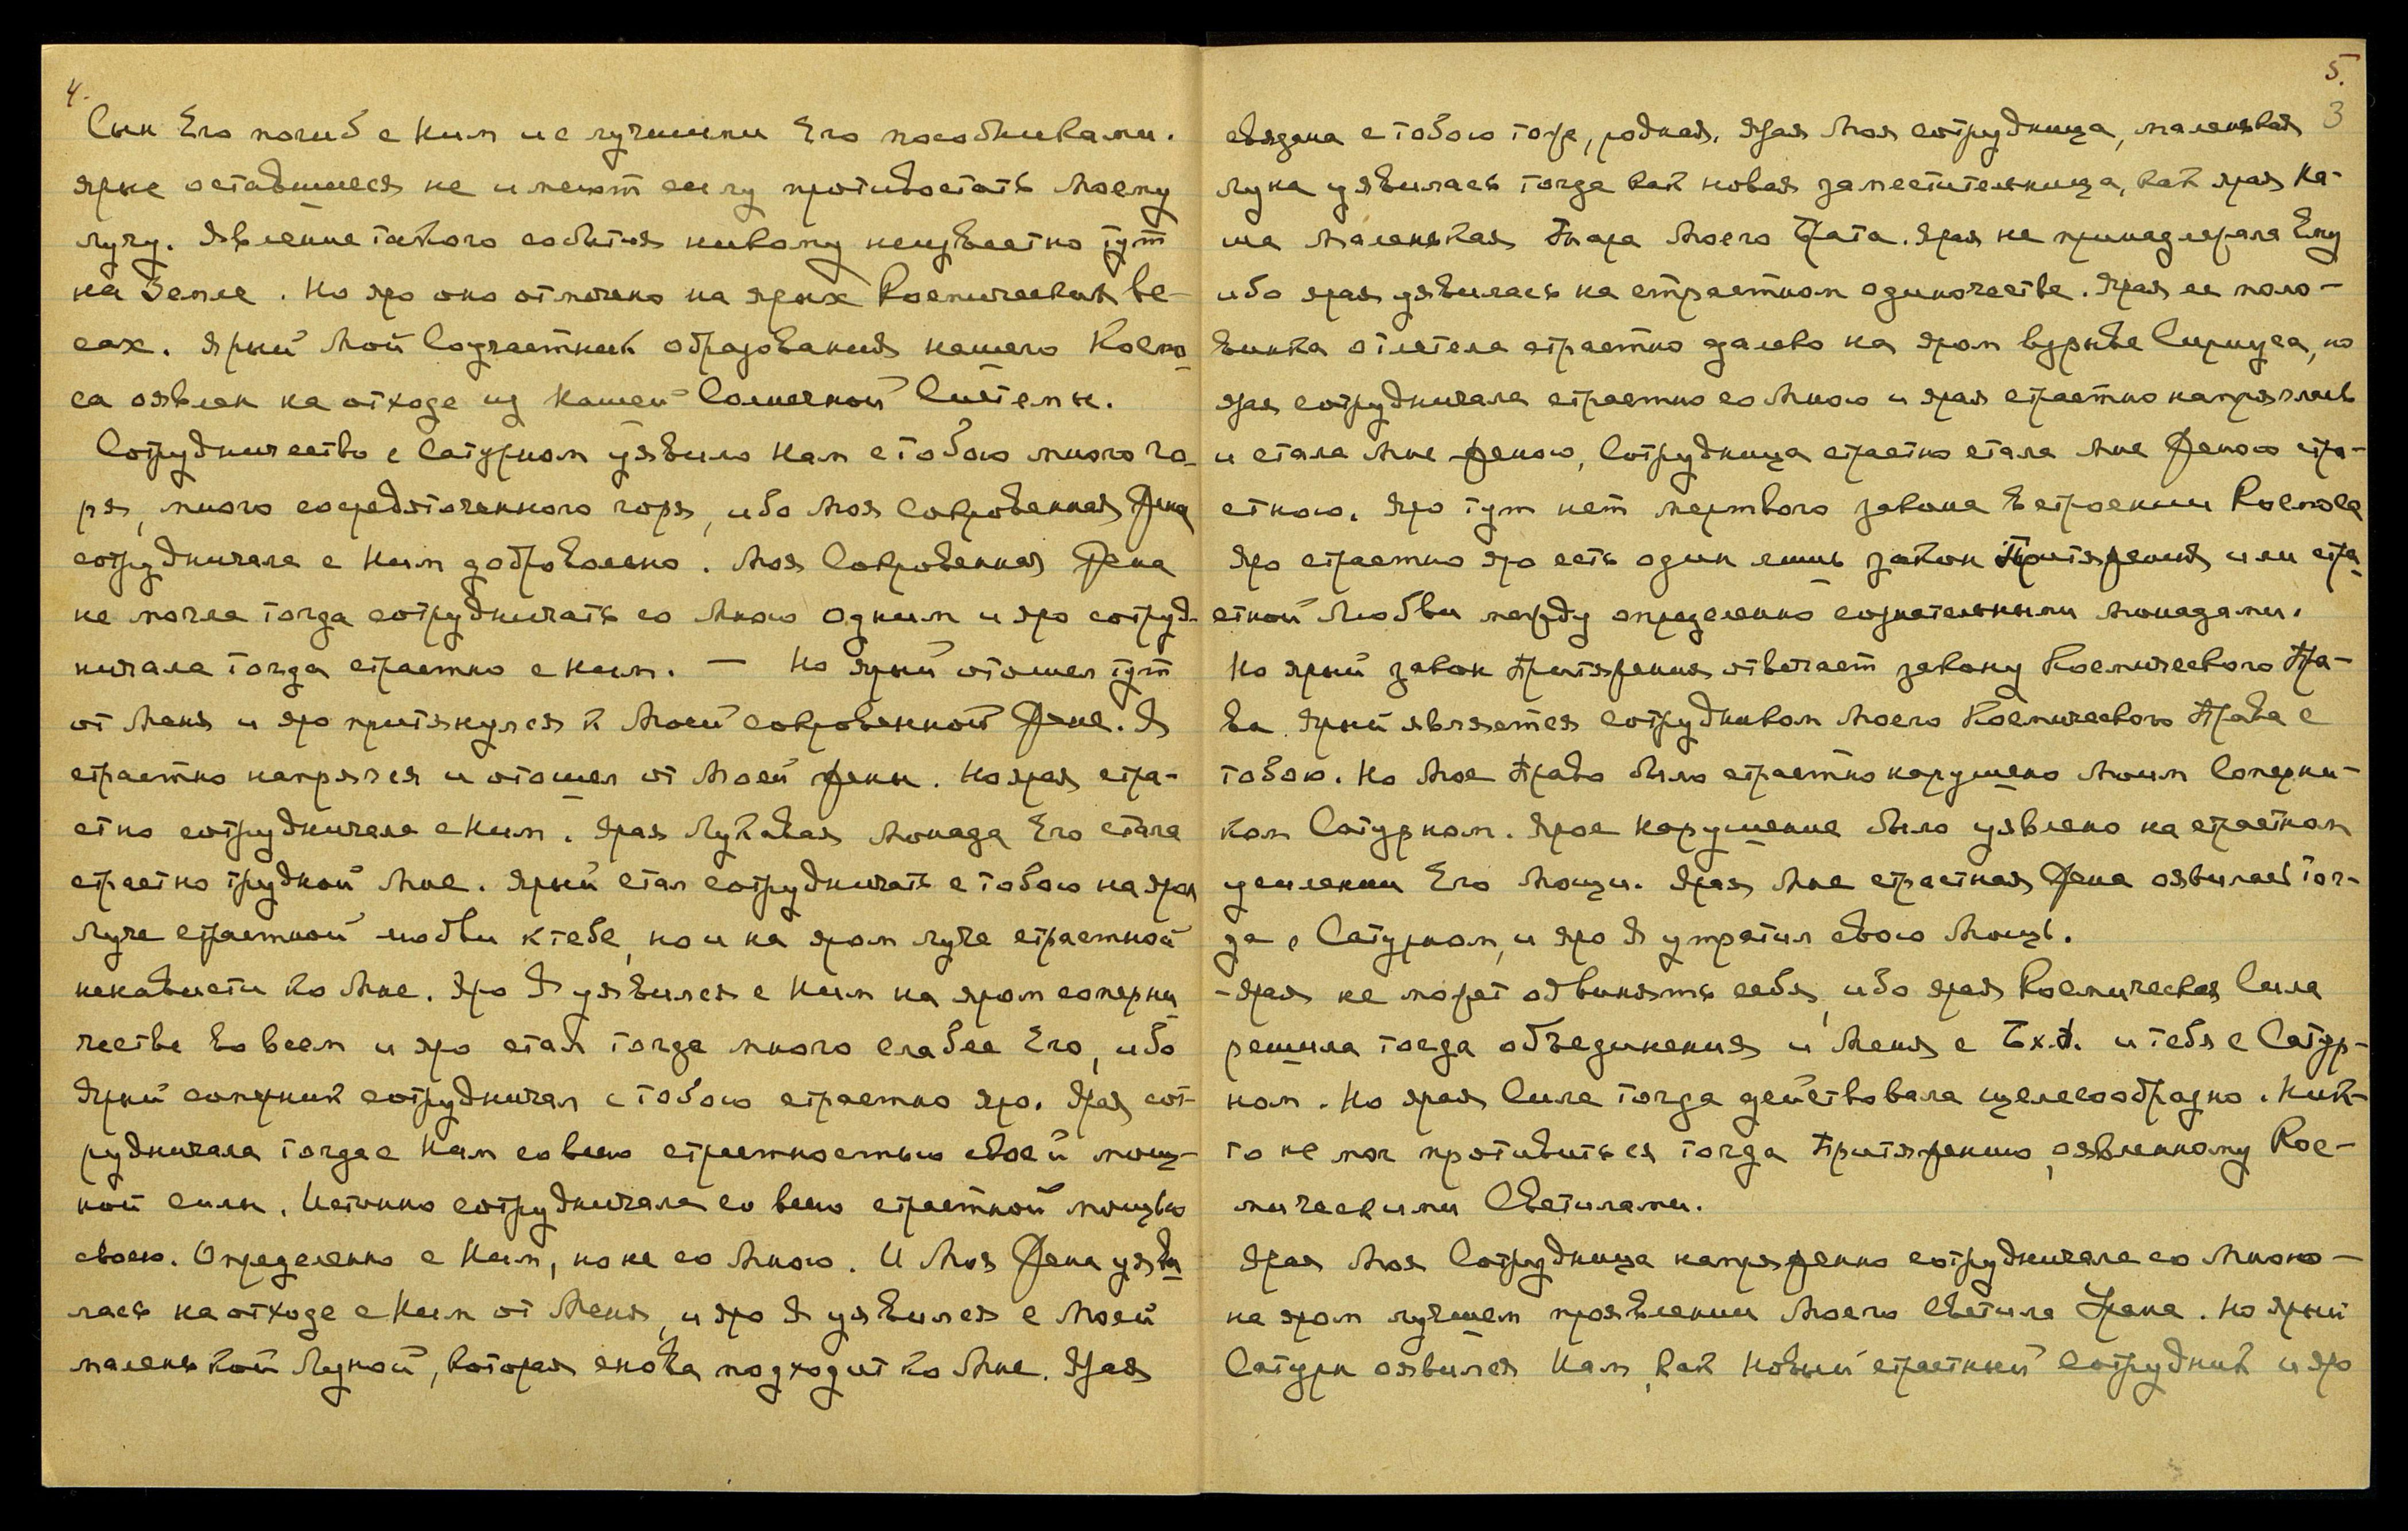 4.
Сын Его погиб с Ним и с лучшими Его пособниками.
Ярые оставшиеся не имеют силу противостать Моему
лучу. Явление такого события никому неизвестно тут
на Земле. Но яро оно отмечено на ярых Космических Ве-
сах. Ярый Мой Соучастник образования нашего Космо
са оявлен на отходе из Нашей Солнечной Системы.
Сотрудничество с Сатурном уявило Нам с тобою много го-
ря, много сосредоточенного горя, ибо Моя Сокровенная Жена
сотрудничала с Ним добровольно. Моя Сокровенная Жена
не могла тогда сотрудничать со Мною одним и яро сотруд-
ничала тогда страстно с Ним. — Но ярый отошел тут
от Меня и яро притянулся к Моей сокровенной Жене. Я
страстно напрягся и отошел от Моей жены. Но ярая стра-
стно сотрудничала с Ним. Ярая Лукавая Монада Его стала
страстно трудной Мне. Ярый стал сотрудничать с тобою на яром
луче страстной любви к тебе, но и на яром луче страстной
ненависти ко Мне. Яро Я уявился с Ним на яром соперни
честве во всем и яро стал тогда много слабее Его, ибо
Ярый соперник сотрудничал с тобою страстно яро. Ярая сот-
рудничала тогда с Ним со всею страстностью своей мощ-
ной силы. Истинно сотрудничала со всею страстной мощью
своею. Определенно с Ним, но не со Мною. И Моя Жена уяви
лась на отходе с Ним от Меня, и яро Я уявился с Моей
маленькой Луной, которая снова подходит ко Мне. Ярая
5.
3
связана с тобою тоже, родная. Ярая Моя сотрудница, маленькая
Луна уявилась тогда как новая заместительница, как ярая На-
ша Маленькая Пара Моего Брата. Ярая не принадлежала Ему
ибо ярая уявилась на страстном одиночестве. Ярая ее поло-
винка отлетела страстно далеко на яром взрыве Сириуса, но
ярая сотрудничала страстно со Мною и ярая страстно напряглась
и стала Мне женою, Сотрудница страстно стала Мне Женою стра-
стною. Яро тут нет мертвого закона в строении Космоса
Яро страстно яро есть один лишь закон Притяжения или стра
стной Любви между определенно сознательными Монадами.
Но ярый закон Притяжения отвечает закону Космического Пра-
ва. Ярый является сотрудником Моего Космического Права с
тобою. Но Мое Право было страстно нарушено Моим Соперни-
ком Сатурном. Ярое Нарушение было уявлено на страстном
усилении Его Мощи. Ярая Мне страстная Жена оявилась тог-
да с Сатурном, и яро Я утратил свою Мощь.
-Ярая не может обвинять себя, ибо ярая Космическая Сила
решила тогда объединения и Меня с Ех.П. и тебя с Сатур-
ном. Но ярая Сила тогда действовала целесообразно. Ник-
то не мог противиться тогда Притяжению, оявленному Кос-
мическими Светилами.
Ярая Моя Сотрудница напряженно сотрудничала со Мною —
на яром лучшем проявлении Моего Светила Урана. Но ярый
Сатурн оявился Нам, как Новый страстный Сотрудник и яро